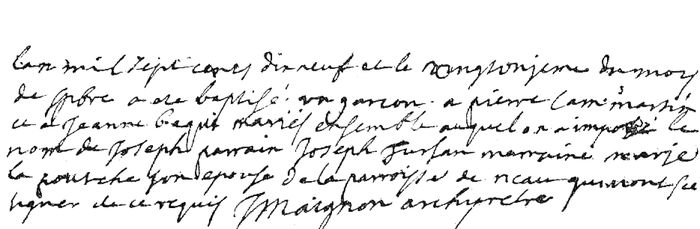 lan mil sept cents dix neuf et le vingt onzieme du mois
de 7bre a ete baptisé un garcon a pierre martin
et a Jeanne begué mariés ensemble auquel on a imposé le
nom de Joseph parrain Joseph fursan marraine marie
la pourche son epouse de la parroisse de nicau qui nont sceu
signer de ce requis Maignon archiprêtre